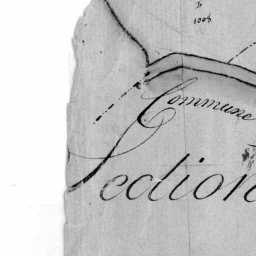 1008
Commune
Section